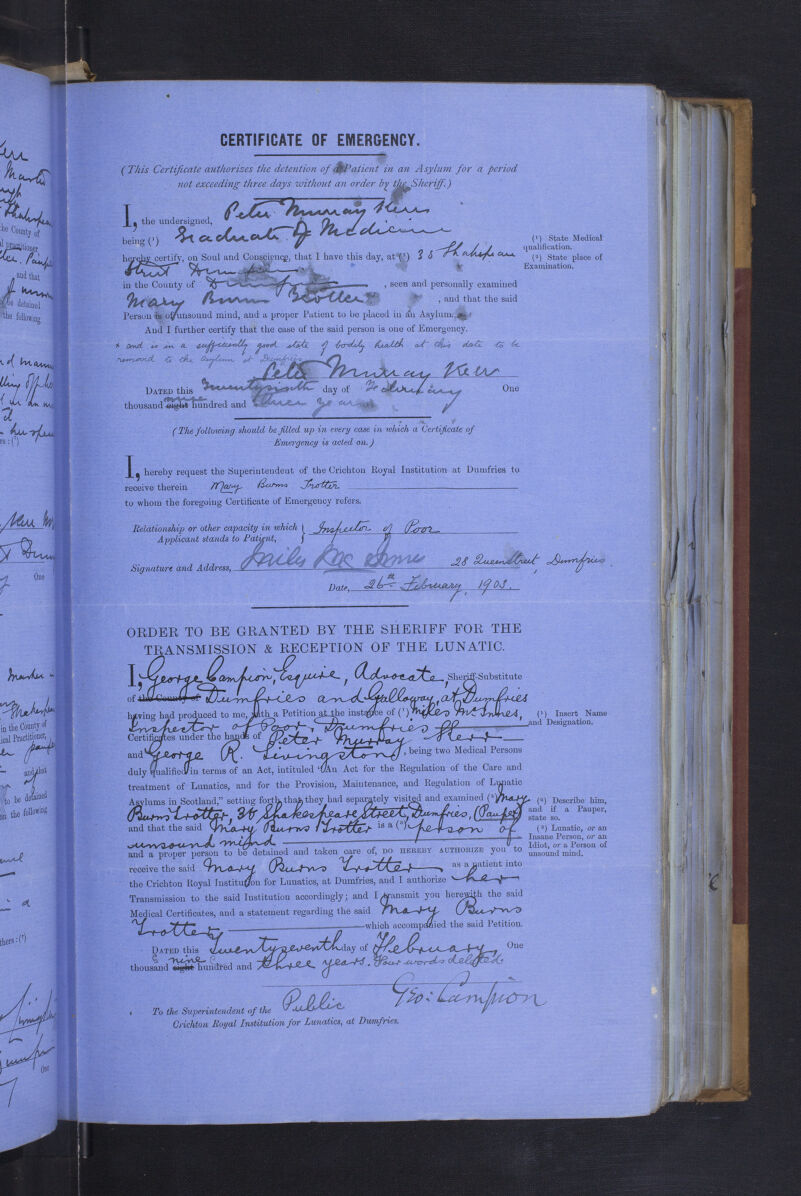 CERTIFICATE OF EMERGENCY.
(This Certificate authorizes the detention of a Patient in an Asylum for a period
not exceeding three days without an order by the Sheriff.)
I, the undersigned, Peter Murray Kerr
being (¹) Graduate of Medicine
(¹) State Medical
qualification.
hereby certify, on Soul and Conscience, that I have this day, at (²) 35 Shakespeare
(²) State place of
Examination.
Street Dumfries
in the County of Dumfries, seen and personally examined
Mary Burns Trotter, and that the said
Person is of unsound mind, and a proper Patient to be placed in an Asylum.
And I further certify that the case of the said person is one of Emergency.
x and is in a sufficiently good state of bodily health at this date to be
removed to the asylum at Dumfries
Peter Murray Kerr
DATED this Twentysixth day of February One
thousand eight nine hundred and three years
(The following should be filled up in every case in which a Certificate of
Emergency is acted on.)
I, hereby request the Superintendent of the Crichton Royal Institution at Dumfries to
receive therein Mary Burns Trotter
to whom the foregoing Certificate of Emergency refers.
Relationship or other capacity in which } Inspector of Poor
Applicant stands to Patient,
Signature and Address, Miles McInnes 28 Queen Street, Dumfries.
Date, 26th February, 1903.
ORDER TO BE GRANTED BY THE SHERIFF FOR THE
TRANSMISSION & RECEPTION OF THE LUNATIC.
I, George Campion, Esquire, Advocate, Sheriff-Substitute
of the County of Dumfries and Galloway, at Dumfries
having had produced to me, with a Petition at the instance of (¹) Miles McInnes,
(¹) Insert Name
and Designation.
Inspector of Poor, Dumfries
Certificates under the hands of Peter Murray Kerr
and George R. Livingston, being two Medical Persons
duly qualified in terms of an Act, intituled "An Act for the Regulation of the Care and
treatment of Lunatics, and for the Provision, Maintenance, and Regulation of Lunatic
Asylums in Scotland," setting forth that they had separately visited and examined (²) Mary
(²) Describe him,
and if a Pauper,
state so.
Burns Trotter, 35 Shakespeare Street, Dumfries, (Pauper)
and that the said Mary Burns Trotter is a (³) person of
(³) Lunatic, or an
Insane Person, or an
Idiot, or a Person of
unsound mind.
unsound mind
and a proper person to be detained and taken care of, DO HEREBY AUTHORIZE you to
receive the said Mary Burns Trotter as a patient into
the Crichton Royal Institution for Lunatics, at Dumfries, and I authorize her
Transmission to the said Institution accordingly; and I transmit you herewith the said
Medical Certificates, and a statement regarding the said Mary Burns
Trotter which accompanied the said Petition.
DATED this Twentyseventh day of February, One
thousand eight nine hundred and three years. Four words deleted
Geo: Campion
To the Superintendent of the Public
Crichton Royal Institution for Lunatics, at Dumfries.